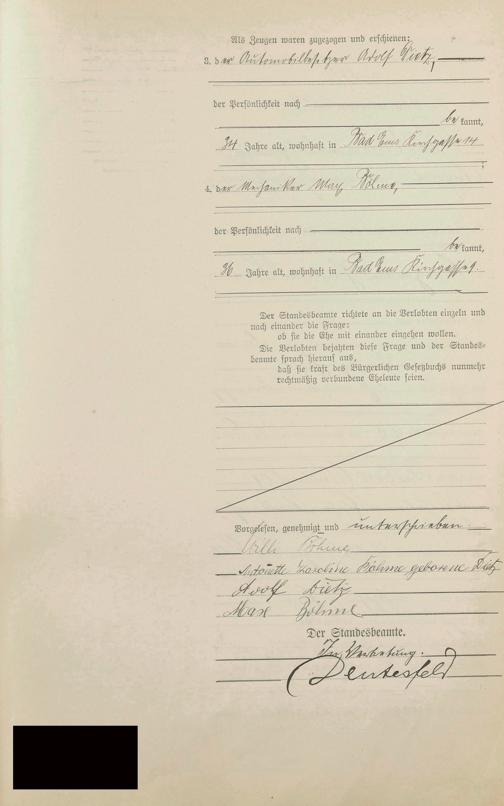 Als Zeugen waren zugezogen und erschienen:
3. der Automobilbesitzer Adolf Dietz,
der Persönlichkeit nach
be kannt,
34 Jahre alt, wohnhaft in Bad Ems Kirchgasse 14
;
4. der Mechaniker Max Böhme,
der Persönlichkeit nach
be kannt,
36 Jahre alt, wohnhaft in Bad Ems Kirchgasse 9.
Der Standesbeamte richtete an die Verlobten einzeln und
nach einander die Frage:
ob sie die Ehe mit einander eingehen wollen.
Die Verlobten bejahten diese Frage und der Standes-
beamte sprach hierauf aus,
daß sie kraft des Bürgerlichen Gesetzbuchs nunmehr
rechtmäßig verbundene Eheleute seien.
Vorgelesen, genehmigt und unterschrieben
Willi Böhme
Antoinette Karoline Böhme geborene Dietz
Adolf Dietz
Max Böhme
Der Standesbeamte.
In Vertretung.